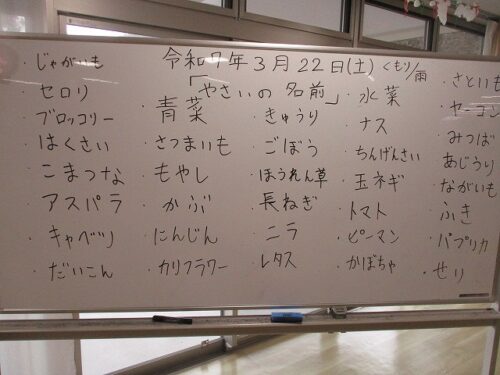 令和7年3月22日(土) くもり/雨
「やさいの名前」
・じゃがいも
・セロリ
・ブロッコリー
・はくさい
・こまつな
・アスパラ
・キャベツ
・だいこん
・青菜
・さつまいも
・もやし
・かぶ
・にんじん
・カリフラワー
・きゅうり
・ごぼう
・ほうれん草
・長ねぎ
・ニラ
・レタス
・水菜
・ナス
・ちんげんさい
・玉ネギ
・トマト
・ピーマン
・かぼちゃ
・さといも
・ヤーコン
・みつば
・あじうり
・ながいも
・ふき
・パプリカ
・せり